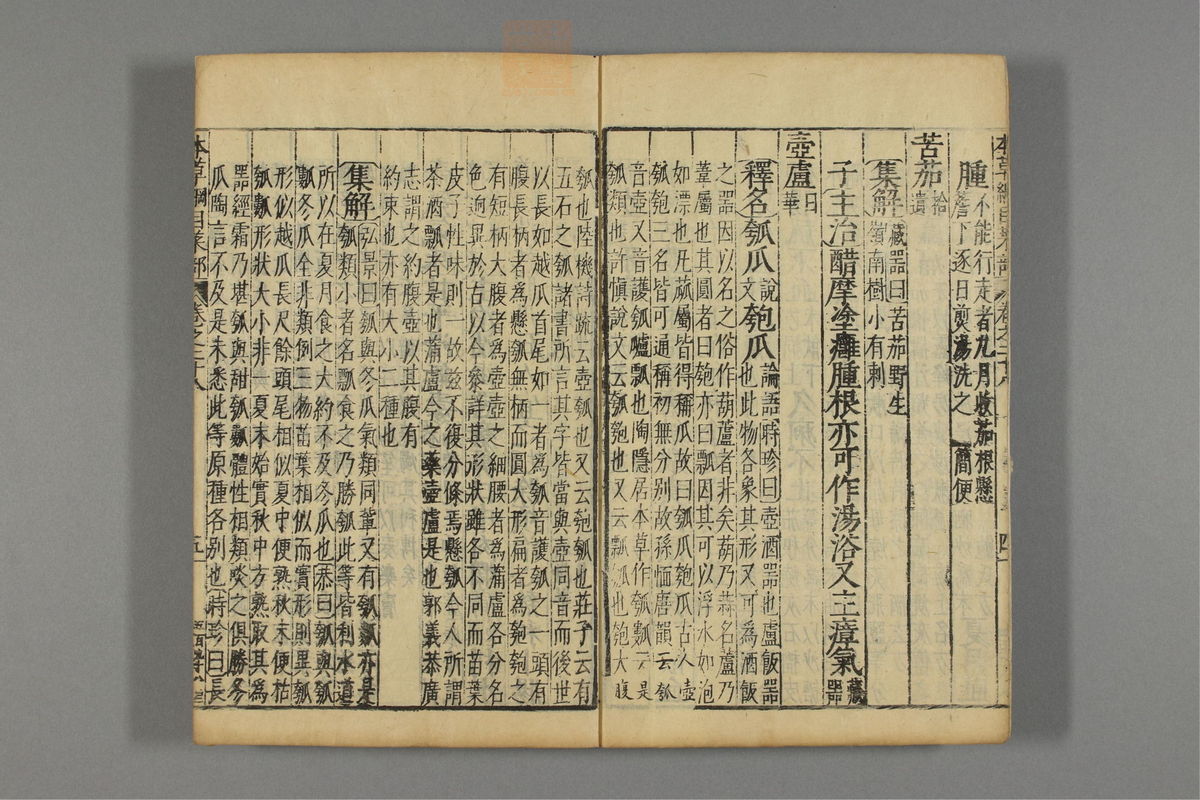 本草綱目菜部 卷之二十八 四
腫不能行走者九月收茄根懸
簷下逐日煎湯洗之 簡便
苦茄拾遺
集解藏器曰苦茄野生
嶺南樹小有刺
子主治醋摩塗癰腫根亦可作湯浴又主瘴氣藏器
壺盧日華
釋名瓠瓜說文匏瓜論語時珍曰壺酒器也盧飯器
也此物各象其形又可為酒飯
之器因以名之俗作葫蘆者非矣葫乃蒜名蘆乃
葦屬也其圓者曰匏亦曰瓢因其可以浮水如泡
如漂也凡蓏屬皆得稱瓜故曰瓠瓜匏瓜古人壺
瓠匏三名皆可通稱初無分別故孫愐唐韻云瓠
音壺又音護瓠㼏瓢也陶隱居本草作瓠𤬛云是
瓠類也許慎說文云瓠匏也又云瓢瓠也匏大腹
瓠也陸機詩疏云壺瓠也又云匏瓠也莊子云有
五石之瓠諸書所言其字皆當與壺同音而後世
以長如越瓜首尾如一者為瓠音護瓠之一頭有
腹長柄者為懸瓠無柄而圓大形扁者為匏匏之
有短柄大腹者為壺壺之細腰者為蒲盧各分名
色迥異於古以今參詳其形狀雖各不同而苗葉
皮子性味則一故茲不復分條焉懸瓠今人所謂
茶酒瓢者是也蒲盧今之藥壺盧是也郭義恭廣
志謂之約腹壺以其腹有
約束也亦有大小二種也
集解弘景曰瓠與冬瓜氣類同輩又有瓠𤬛亦是
瓠類小者名瓢食之乃勝瓠此等皆利水道
所以在夏月食之大約不及冬瓜也恭曰瓠與瓠
𤬛冬瓜全非類例三物苗葉相似而實形則異瓠
形似越瓜長尺餘頭尾相似夏中便熟秋末便枯
瓠𤬛形狀大小非一夏末始實秋中方熟取其為
器經霜乃堪瓠與甜瓠𤬛體性相類啖之俱勝冬
瓜陶言不及是未悉此等原種各別也時珍曰長
本草綱目菜部 卷之二十八 五